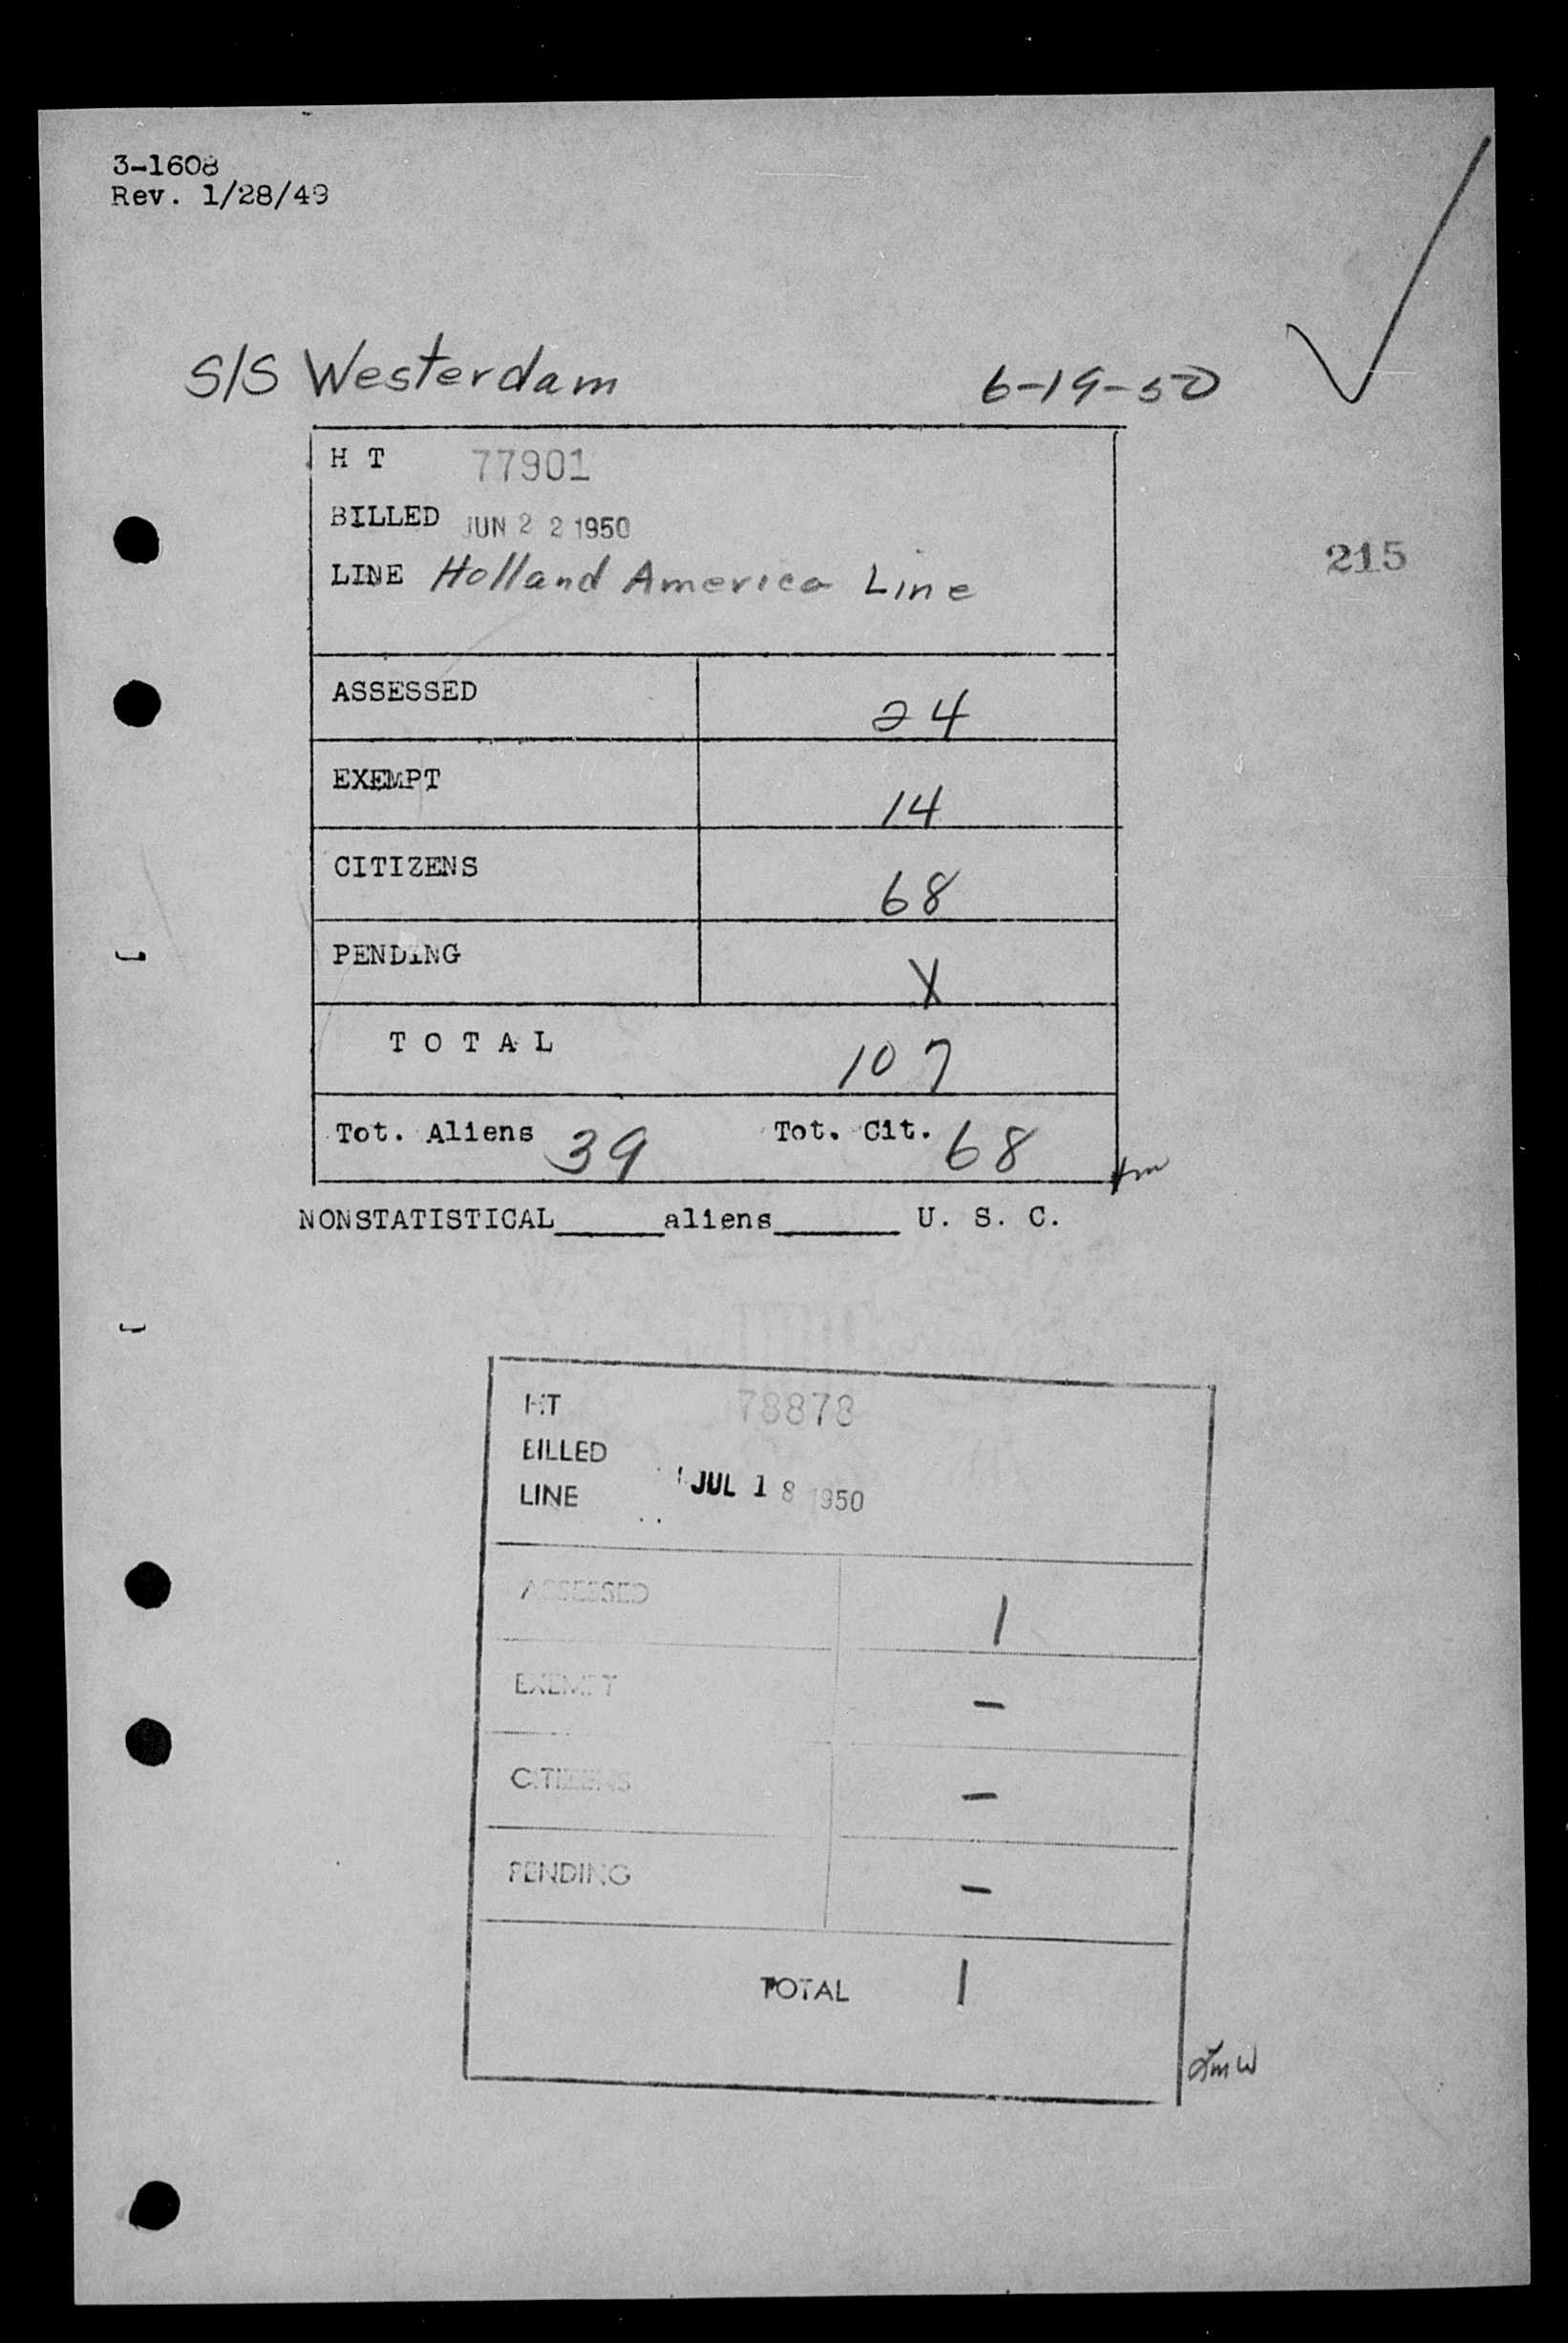 3-1608
Rev. 1/28/49
S/S Westerdam 6-19-50
H T 77901
BILLED JUN 22 1950
LINE Holland America Line
215
ASSESSED 24
EXEMPT 14
CITIZENS 68
PENDING X
TOTAL 107
Tot. Aliens 39 Tot. Cit. 68
NONSTATISTICAL aliens U. S. C.
HT 78878
BILLED
LINE JUL 18 1950
ASSESSED 1
EXEMPT -
CITIZENS -
PENDING -
TOTAL 1